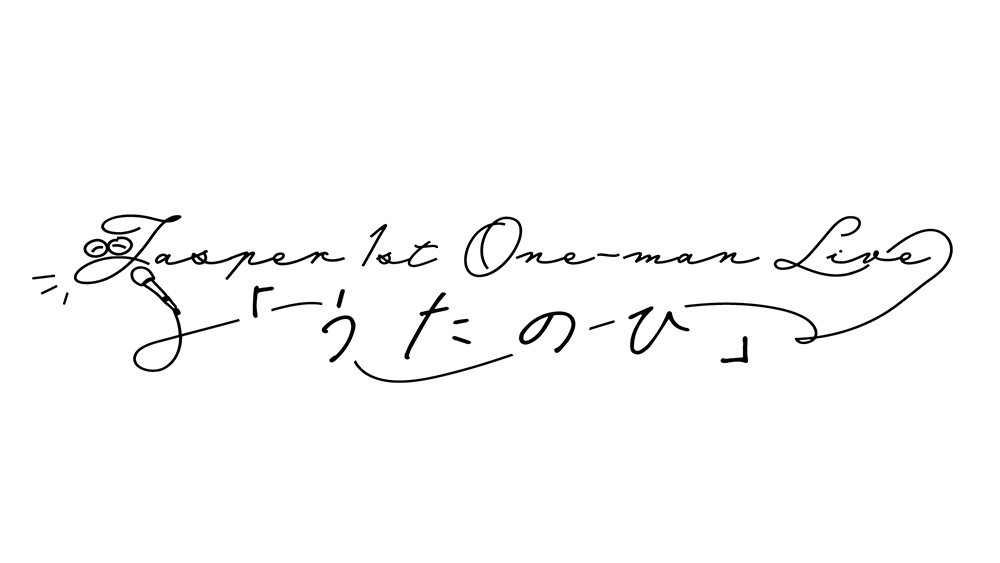 Jasper 1st One-man Live
「うたのひ」